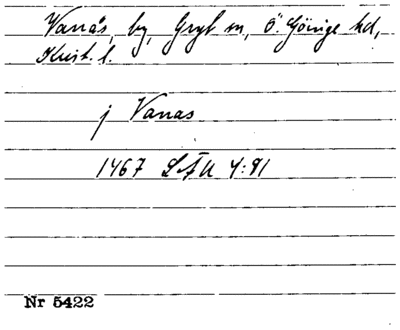 Vanås, by, Gryt sn, Ö. Göinge hd,
Krist. l.
j Vanas
1467 LÄU 4:81
Nr 5422